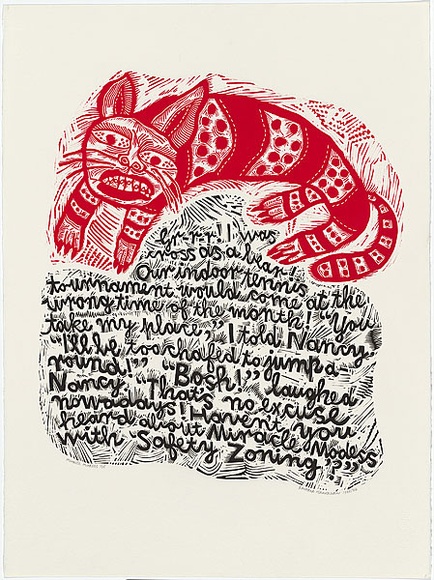 Gr-r-r! I was
cross as a bear!
Our indoor tennis
tournament would come at the
wrong time of the month! "You
take my place," I told Nancy.
"I'll be too chafed to jump a-
round!" "Bosh!" laughed
Nancy. "That's no excuse
nowadays! Haven't you
heard about Miracle Modess
with Safety Zoning?"